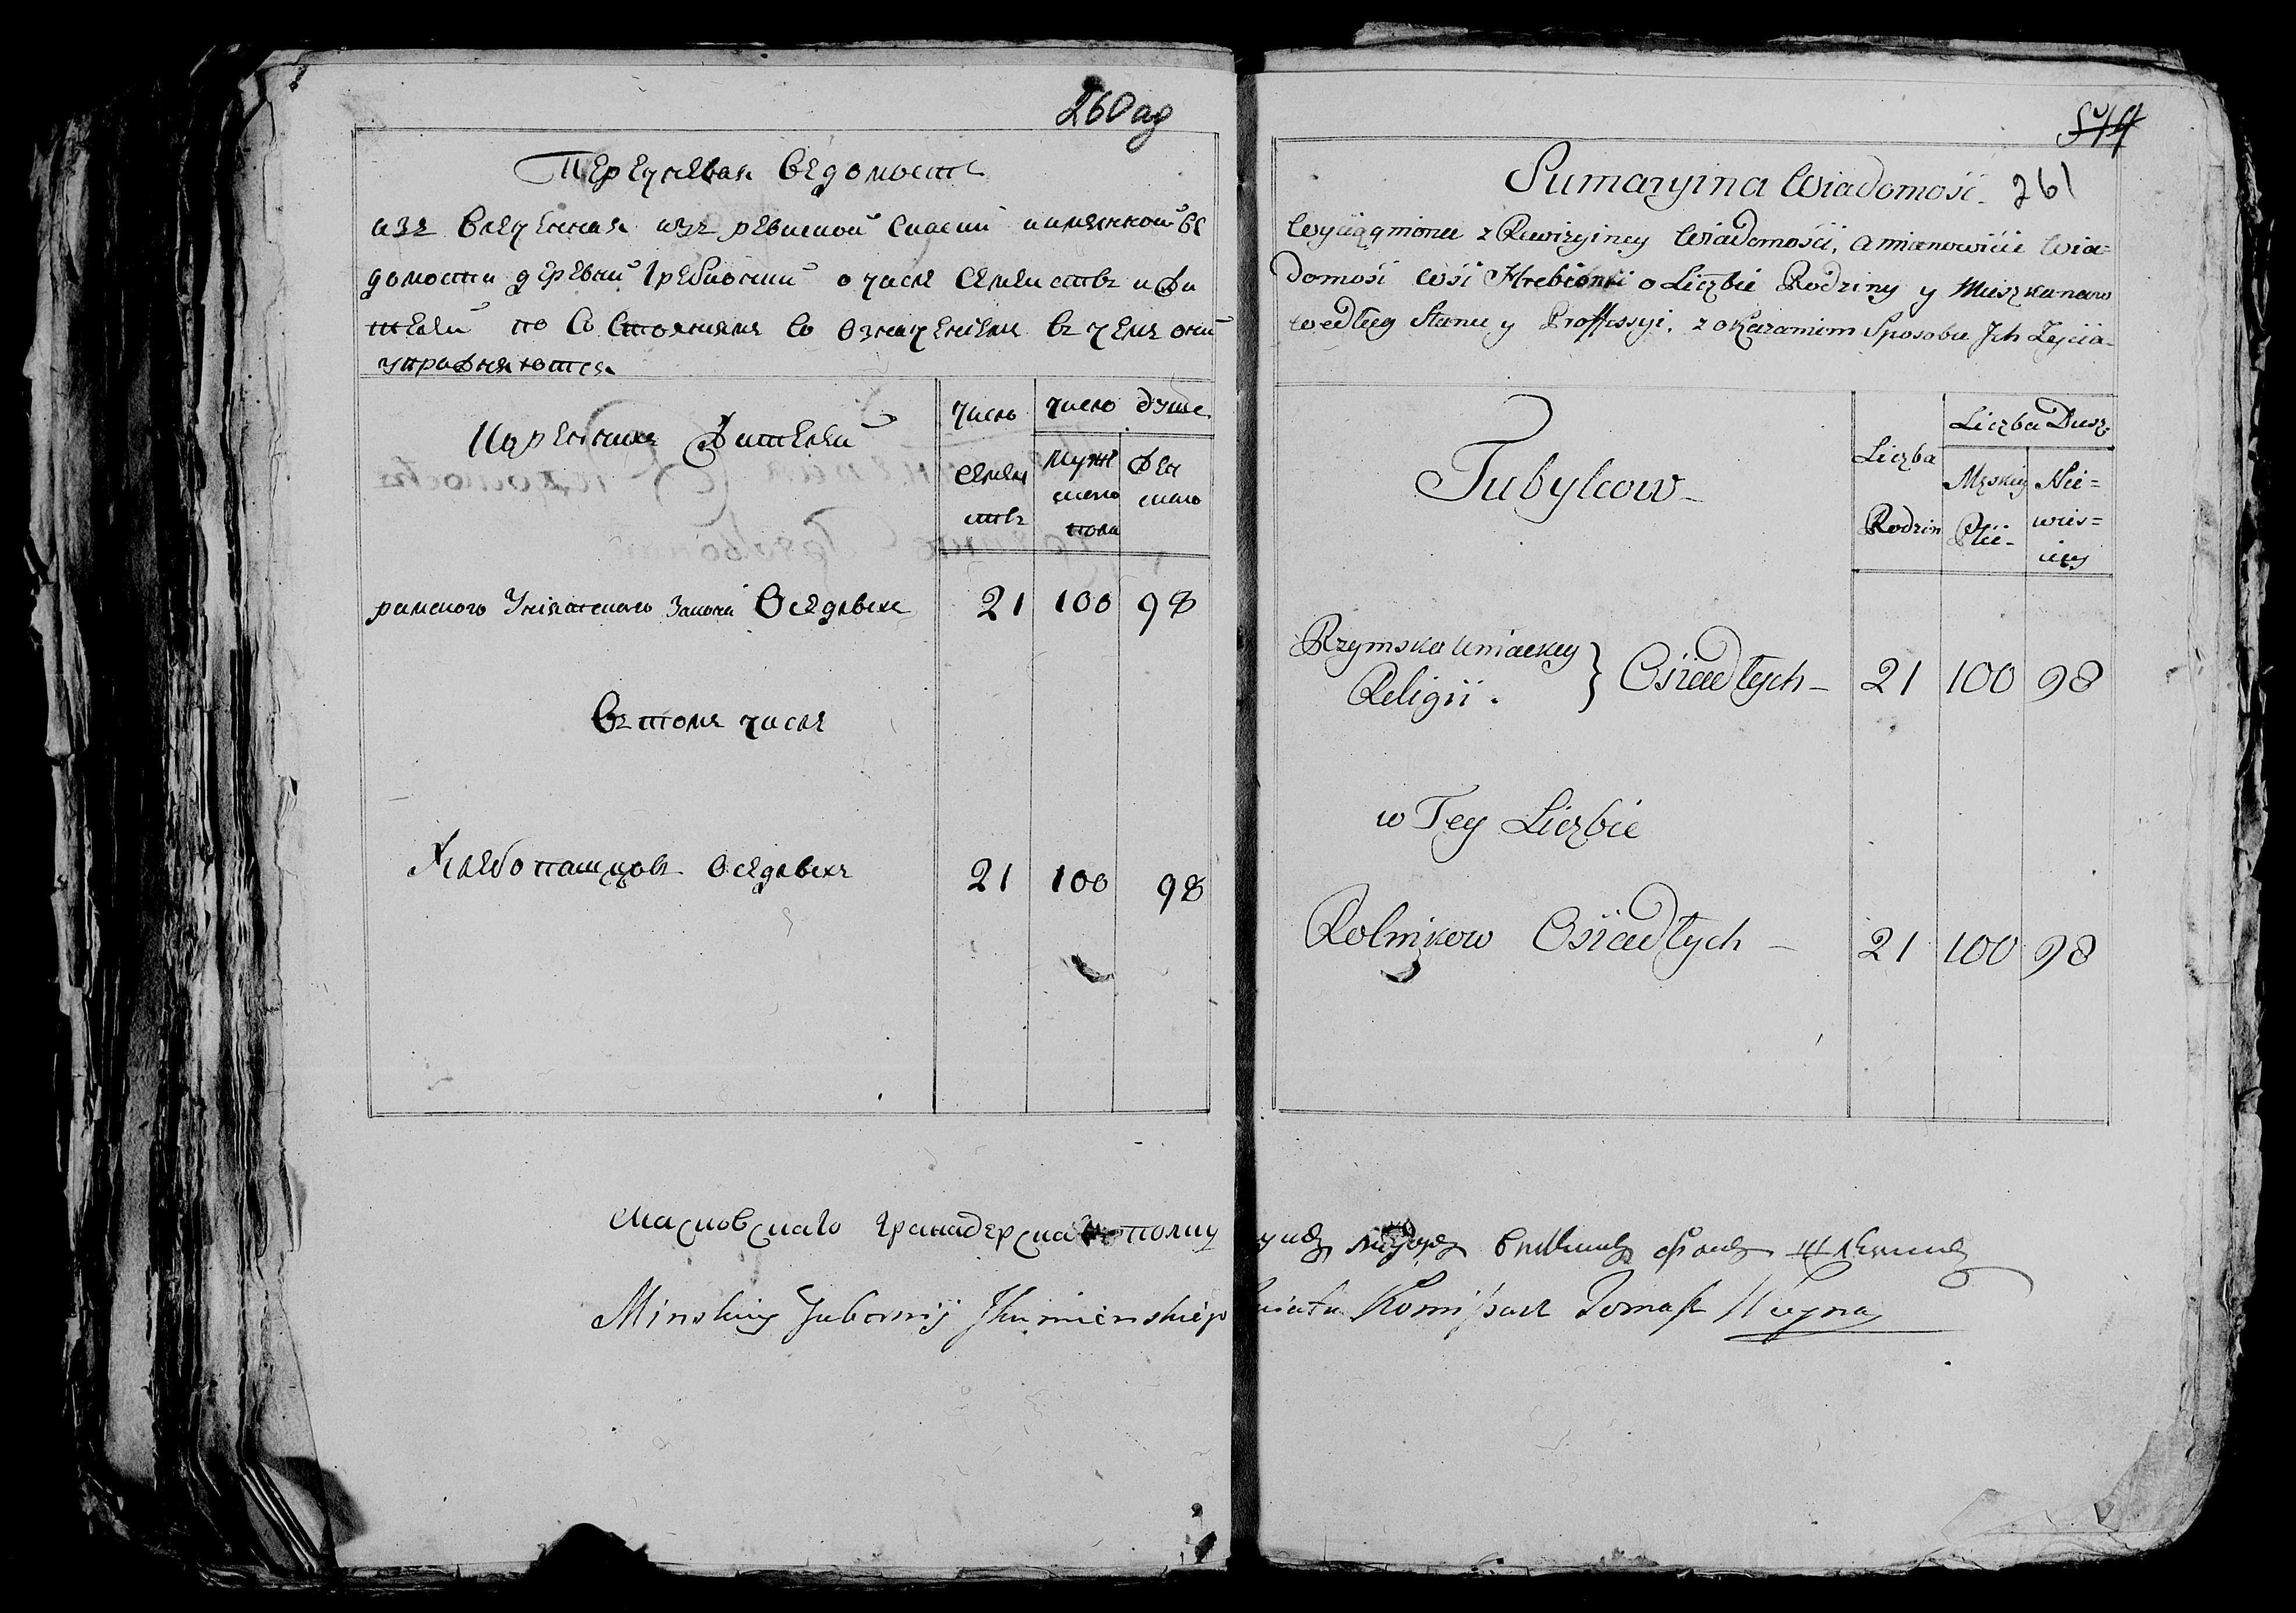 260 ад
Перечневая ведомость
извлеченная изъ ревиской скаски именной ве
домости деревни Гребионки о числе семействъ и жи
телей по состояниямъ со означениемъ въ чемъ они
упражняются
Коренныхъ жителей
число
семей
ствъ
число душъ
муже
ского
пола
жен
ского
римского униатского закона оседлыхъ 21 100 98
въ томъ числе
хлебопашцовъ оседлыхъ 21 100 98
261
Sumaryina Wiadomość
Wyciągniona z Rewizyiney Wiadomości, a mianowicie Wia=
domość Wsi Hrebionki o Liczbie Rodziny y Mieszkancow
według Stanu y Proffessyi, z okazaniem Sposobu Jch Zycia
Tubylcow
Liczba
Rodzin
Liczba Dusz
Męskiy
Płci
Nie=
wies=
ciey
Rzymsko Uniackiey
Religii.
} Osiadłych 21 100 98
w Tey Liczbie
Rolnikow Osiadłych 21 100 98
Московского гранадерского полку
Minskiey Gubernij Jhumienskiego Powiatu Komissarz Tomasz